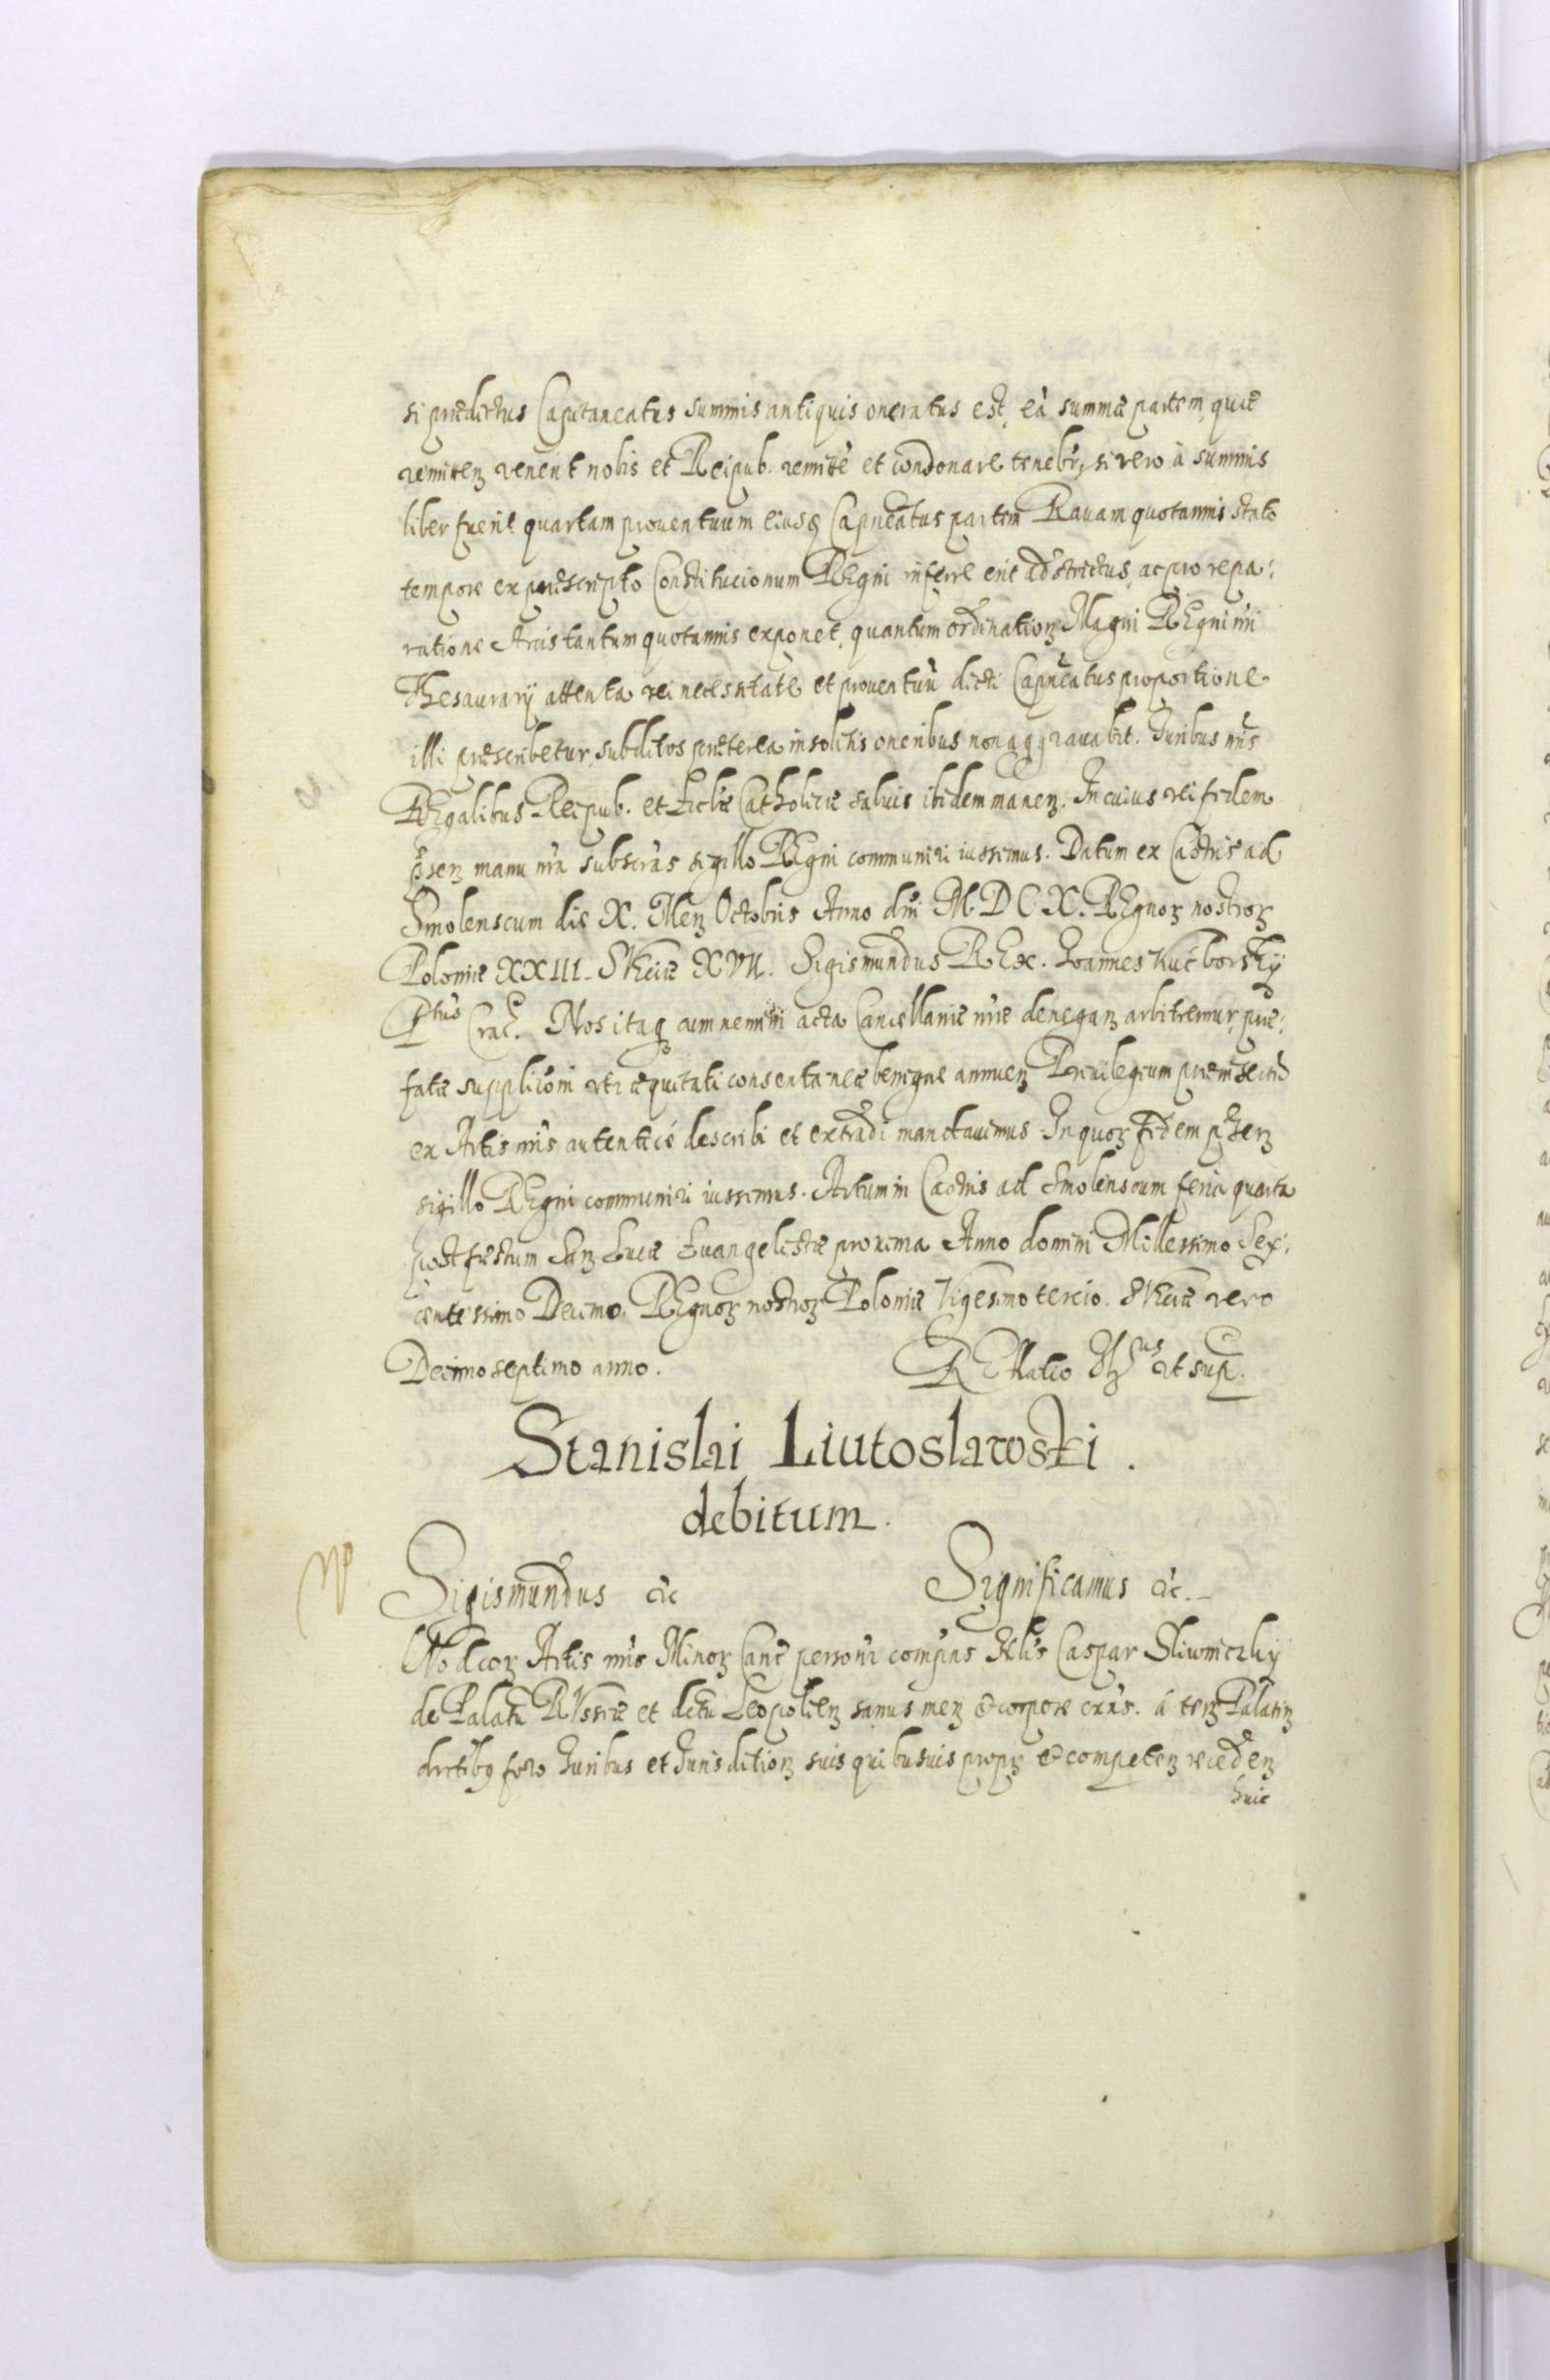 si prædictus Capitaneatus summis antiquis oneratus est, eà summæ partem, quæ
remitten venerit nobis et Reipub. remittè et condonare tenebr, si vero à summis
liber fuerit quartam proventuum eiusq Capneatus partem Ravam quotannis stato
tempore ex præscripto Constitucionum REgni inferre erit adstrictus, ac pro repa:
ratione Arcis tantum quotannis exponet, quantum ordinationẽ Magni REgni nri
Thesaurarij attenta rei necessitate et proventuũ dicti Capneatus proportione
illi præscribetur, subditos præterea insolitis oneribus non aggravabit. Iuribus nris
REgalibus Reipub. et Ecclæ Catholicæ salvis ibidem manen. In cuius rei fidem
pñsen manu nra subscràs sigillo REgni communiri iussimus. Datum ex Castris ad
Smolenscum die X. Men Octobris Anno dni M D C X. REgnor nostror
Poloniæ XXIII. SVeciæ XVII. Sigismundus REx. Ioannes Kucborsky
Ptus Crac. Nos itaq cum nemini acta Cancellariæ nræ denegan arbitremur, præ:
fatæ supplicõni uti æquitati consentaneæ benigne annuen Privilegium præinsertũ
ex Actis nris autenticè describi et extradi mandavimus. In quor fidem pñsen
sigillo REgni communiri iussimus. Actum in Castris ad Smolenscum feria quarta
post festum San Lucæ Evangelistæ proxima Anno domini Millessimo Sex:
centessimo Decimo. REgnor nostror Poloniæ Vigesimo tercio. SVeciæ vero
Decimo septimo anno. RElatio ut sup.
Stanislai Liutoslawski.
debitum.
Sigismundus &c Significamus &c.
Actis nris Minor Canc personr compns Caspar Sliwniczky
de Palatũ RVssiæ et Leopolien sanus men & corpore exns. à Palatin
foro Iuribus et Iurisdition suis quibusvis propr & competen receden
huic